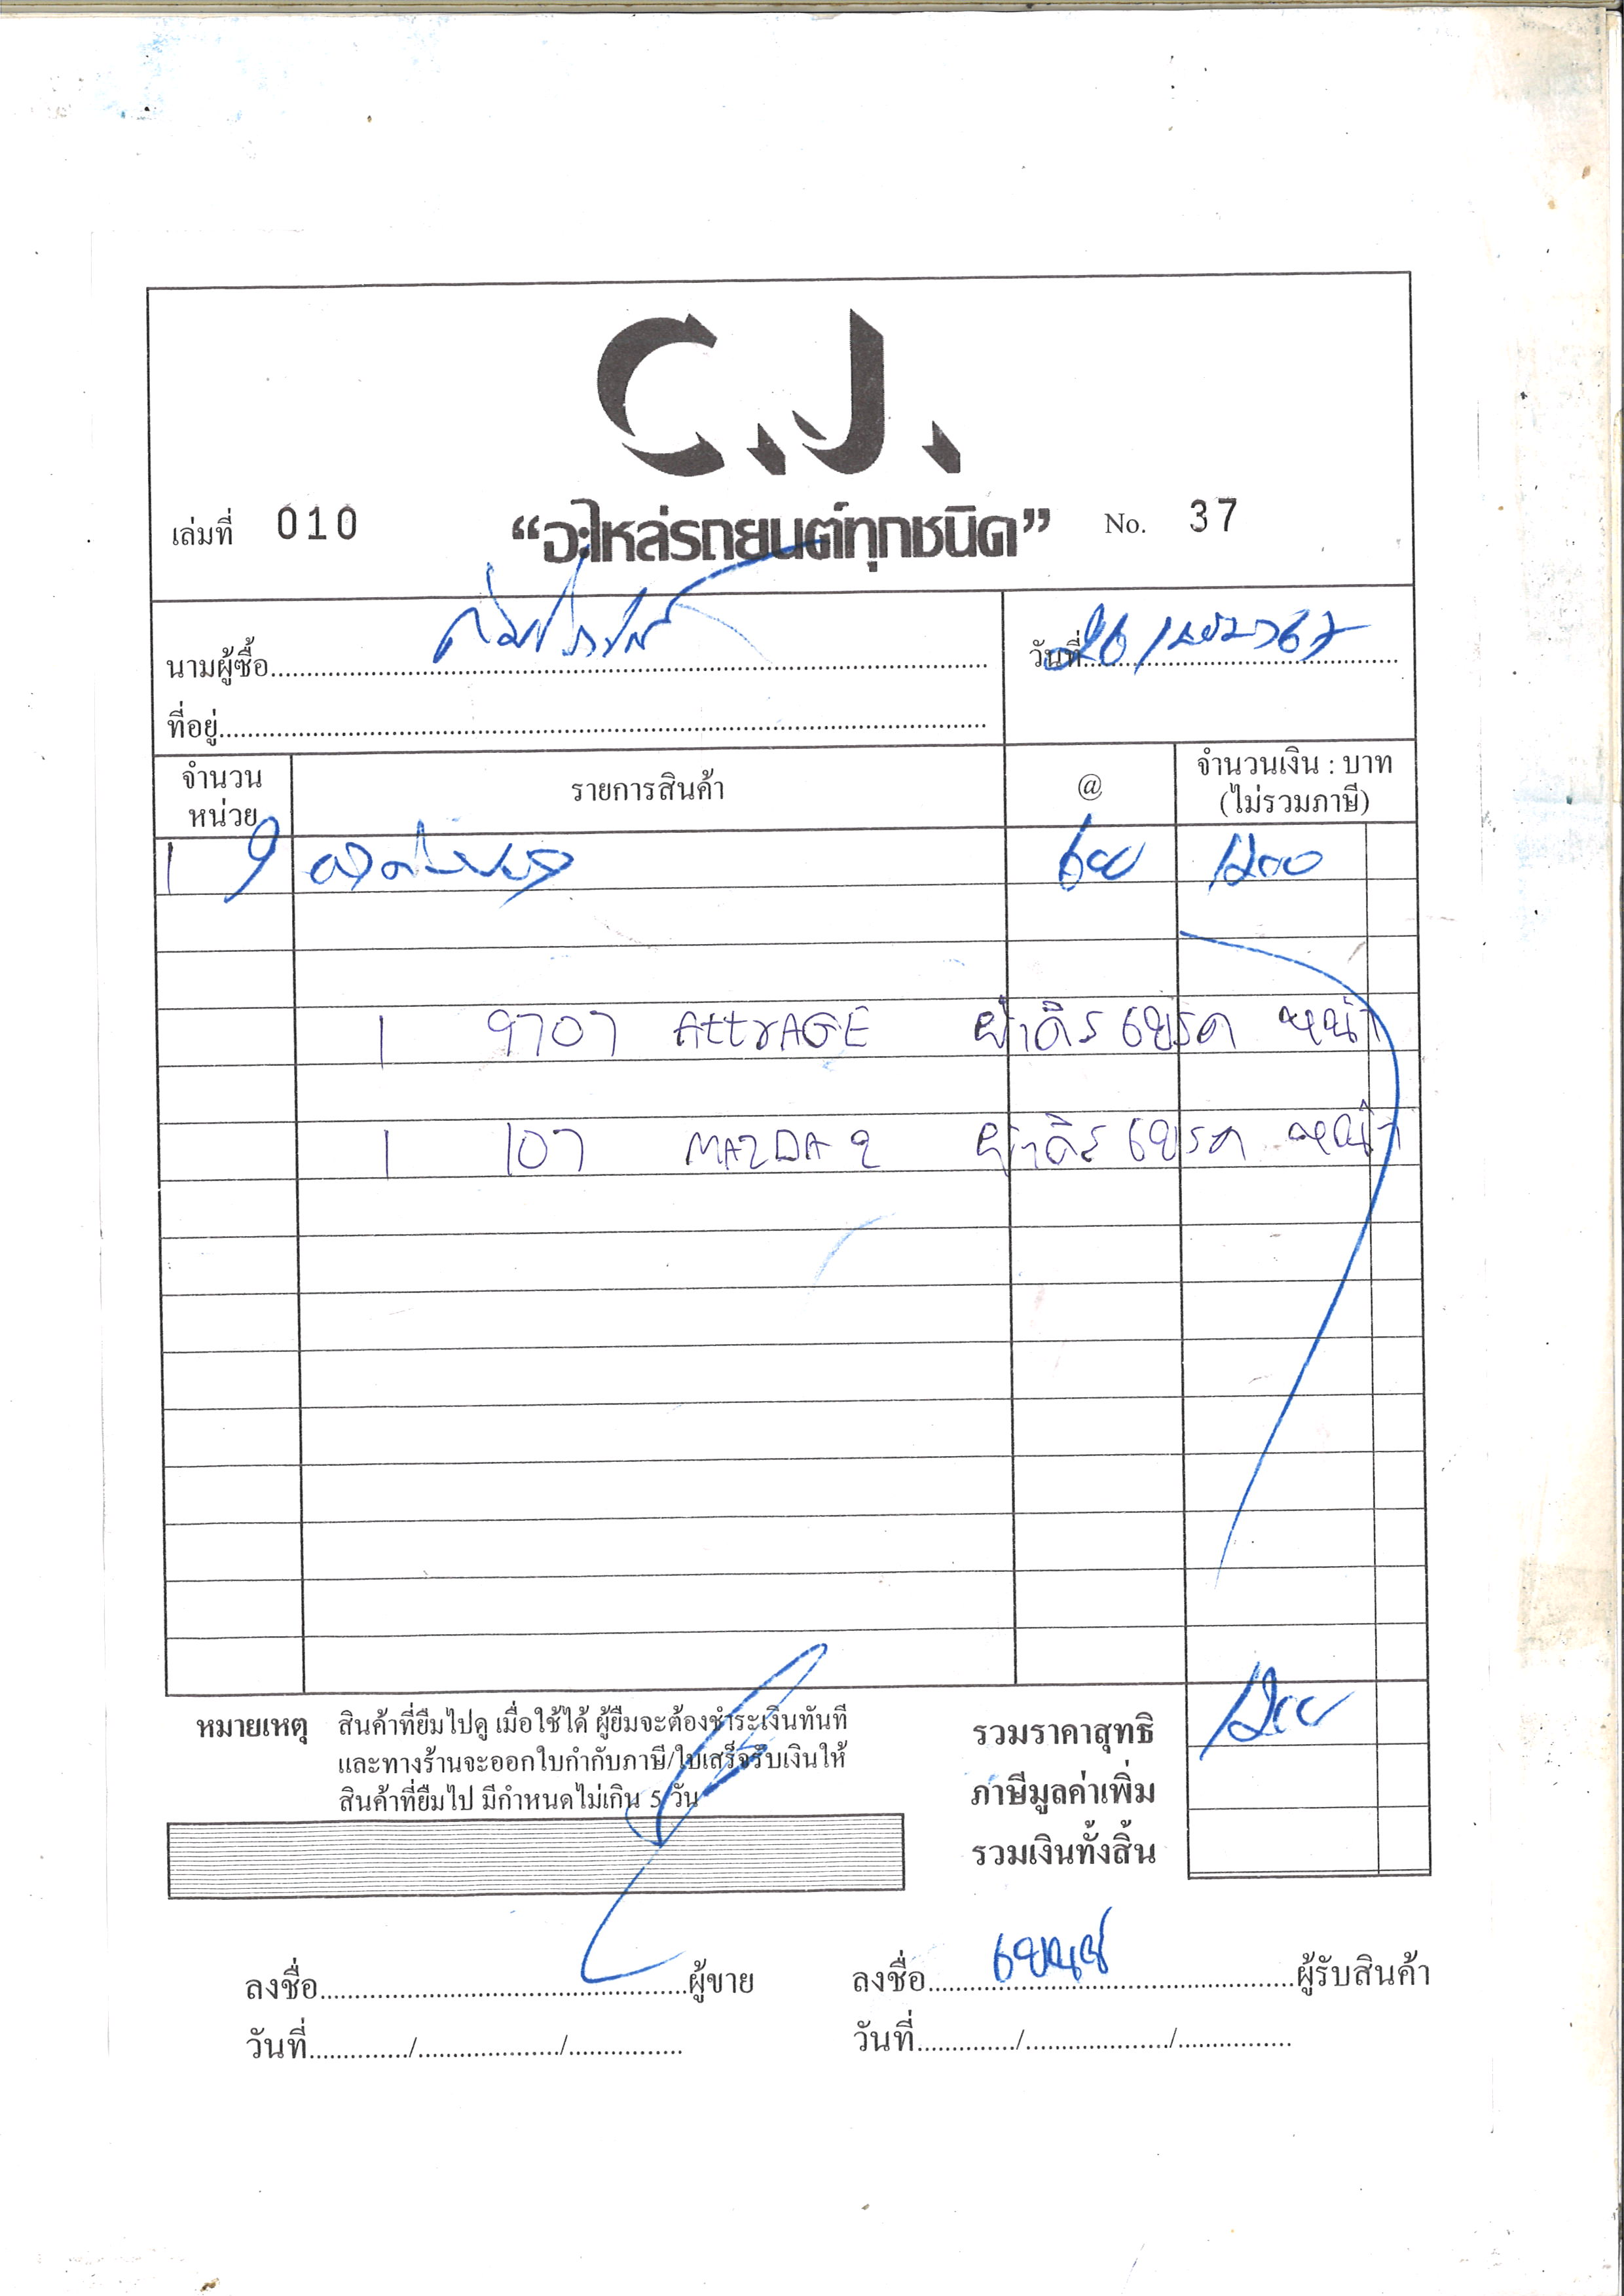 C.J.
เล่มที่ 010 “อะไหล่รถยนต์ทุกชนิด” No. 37
นามผู้ซื้อ
วันที่ 26/
ที่อยู่
จำนวนหน่วย รายการสินค้า @ จำนวนเงิน : บาท (ไม่รวมภาษี)
600 1200
1 9707 AttrAGE ผ้าดิสเบรค หน้า
1 107 MAZDA 2 ผ้าดิสเบรค หน้า
หมายเหตุ สินค้าที่ยืมไปดู เมื่อใช้ได้ ผู้ยืมจะต้องชำระเงินทันที
และทางร้านจะออกใบกำกับภาษี/ใบเสร็จรับเงินให้
สินค้าที่ยืมไป มีกำหนดไม่เกิน 5 วัน
รวมราคาสุทธิ 1200
ภาษีมูลค่าเพิ่ม
รวมเงินทั้งสิ้น
ลงชื่อ ผู้ขาย ลงชื่อ ผู้รับสินค้า
วันที่ / / วันที่ / /